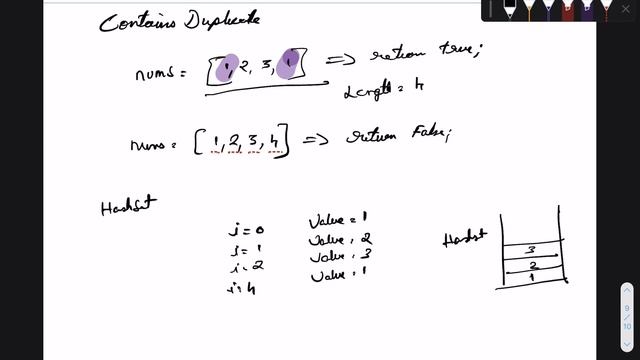 Contains Duplicate
nums = [1, 2, 3, 1] => return true;
Length = 4
nums = [1, 2, 3, 4] => return False;
HashSet
i = 0 Value = 1
i = 1 Value = 2
i = 2 Value = 3
i = 4 Value = 1
Hashset
3
2
1
9
/
10